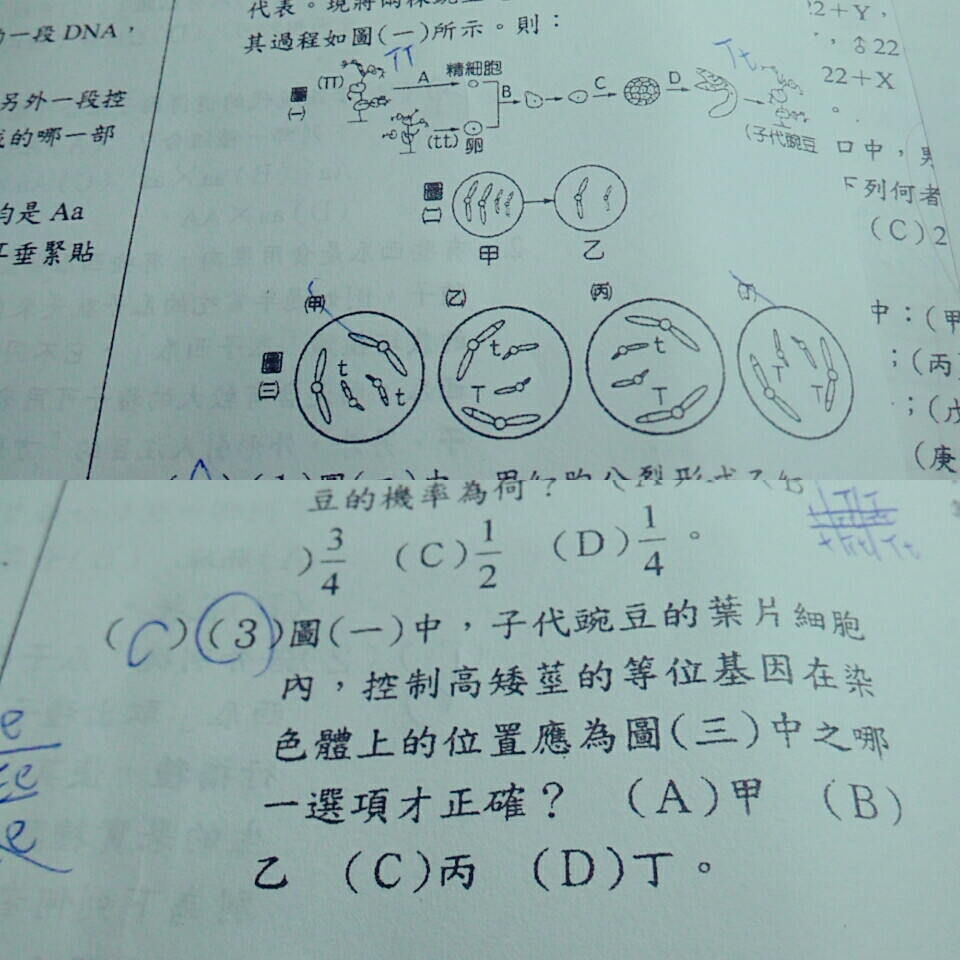 一段 DNA，
另外一段控
的哪一部
均是 Aa
垂緊貼
其過程如圖(一)所示。則：
圖(一)
(TT)
TT
A
精細胞
B
C
D
Tt
(tt)
卵
(子代豌豆
22+Y，
，♁22
22+X
口中，男
下列何者
(C)2
圖(二)
甲
乙
中：(甲
；(丙)
；(戊
(庚
(甲)
(乙)
(丙)
(丁)
圖(三)
t
t
t
T
t
T
T
T
豆的機率為何？
)3/4 (C)1/2 (D)1/4。
(C)(3)圖(一)中，子代豌豆的葉片細胞
內，控制高矮莖的等位基因在染
色體上的位置應為圖(三)中之哪
一選項才正確？ (A)甲 (B)
乙 (C)丙 (D)丁。